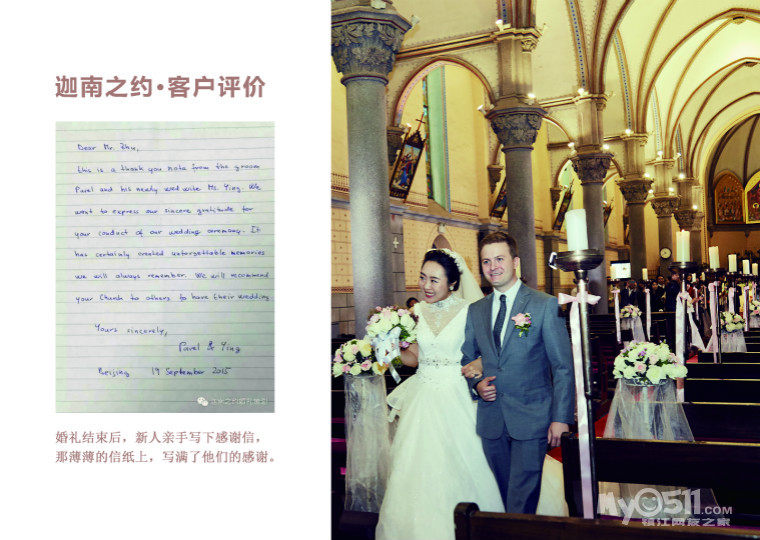 迦南之约•客户评价
Dear Mr. Zhu,
this is a thank you note from the groom
Pavel and his newly wed wife Ms. Ying. We
want to express our sincere gratitude for
your conduct of our wedding ceremony. It
has certainly created unforgettable memories
we will always remember. We will recommend
your Church to others to have their wedding
Yours sincerely,
Pavel & Ying
Beijing 19 September 2015
婚礼结束后，新人亲手写下感谢信，
那薄薄的信纸上，写满了他们的感谢。
MyO511.com
镇江网友之家